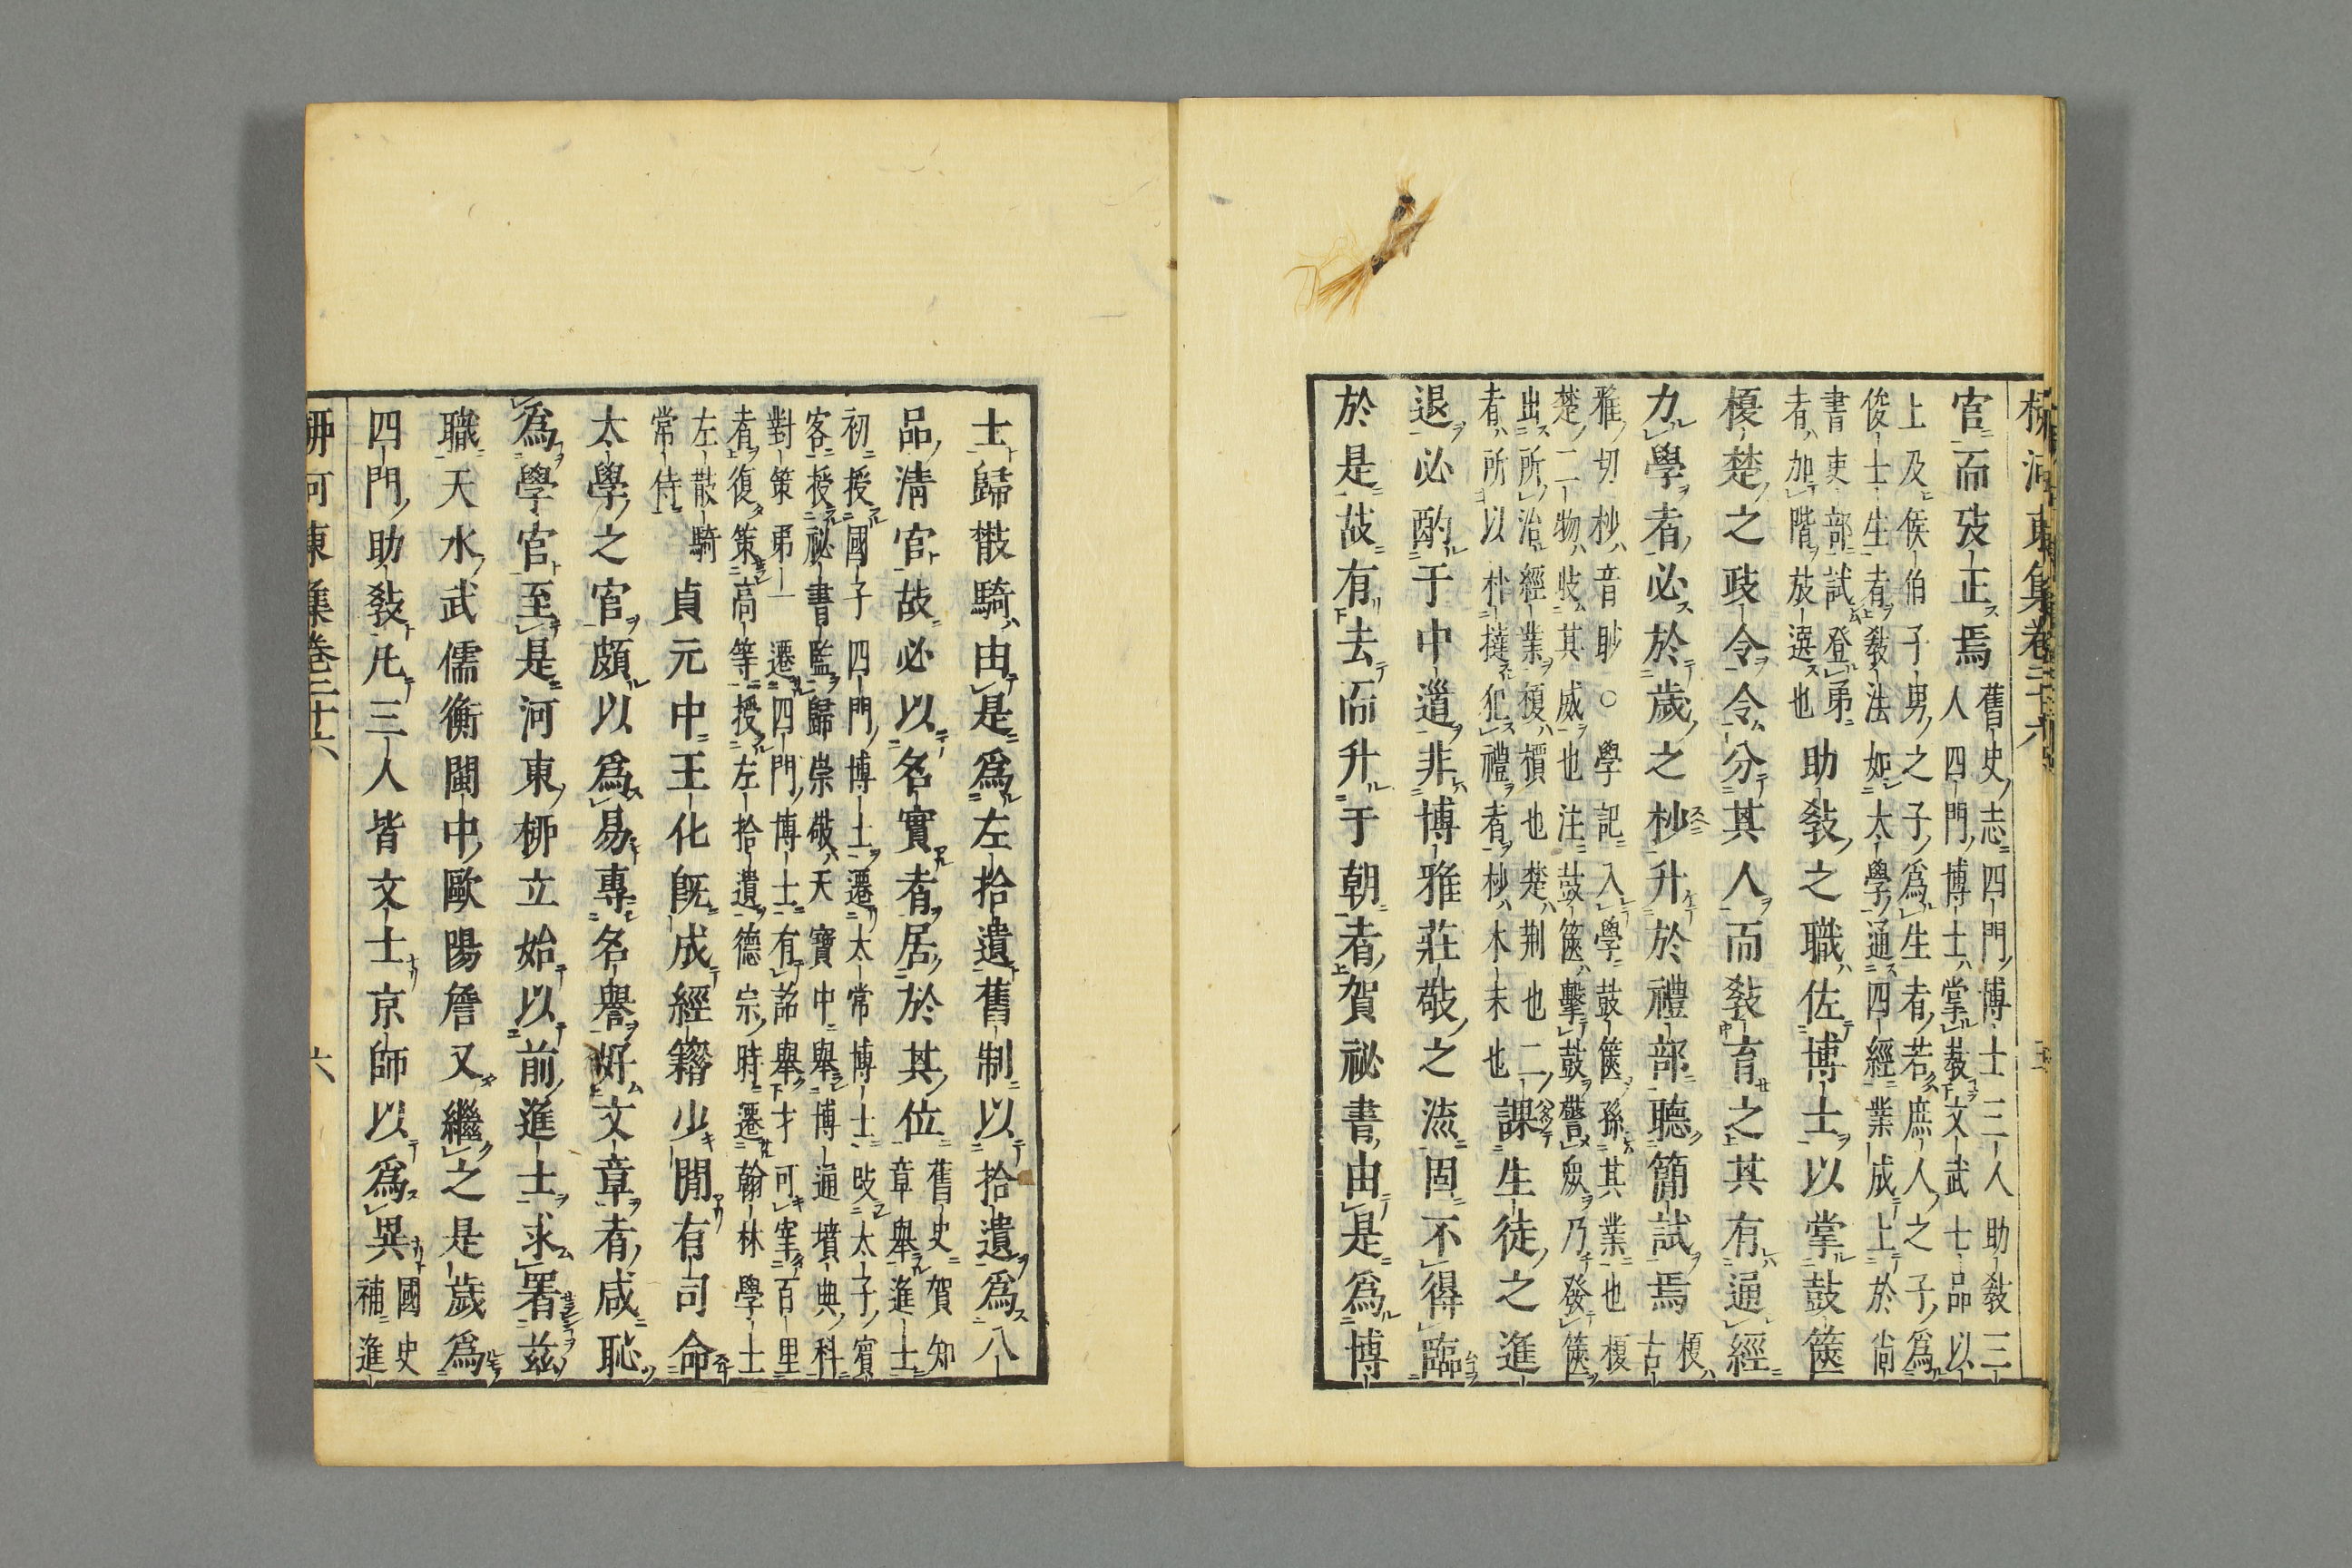 柳河東集卷二十六 五
官而攷正焉舊史志四門博士三人助教三
人四門博士掌教文武七品以
上及侯伯子男之子爲生者若庶人之子爲
俊士生者教法如太學通四經業成上於尚
書吏部試登弟
者加階放選也助教之職佐博士以掌鼓篋
榎楚之政令令分其人而教育之其有通經
力學者必於歲之杪升於禮部聽簡試焉榎
古
雅切杪音眇○學記入學鼓篋孫其業也榎
楚二物收其威也注鼓篋擊鼓警衆乃發篋
出所治經業榎檟也楚荆也二
者所以朴撻犯禮者杪木末也課生徒之進
退必酌于中道非博雅莊敬之流固不得臨
於是故有去而升于朝者賀祕書由是爲博
士歸散騎由是爲左拾遺舊制以拾遺爲八
品清官故必以名實者居於其位舊史賀知
章舉進士
初授國子四門博士遷太常博士改太子賓
客授祕書監歸崇敬天寶中舉博通墳典科
對策弟一遷四門博士有詔舉才可宰百里
者復策高等授左拾遺德宗時遷翰林學士
左散騎
常侍貞元中王化既成經籍少閒有司命
太學之官頗以爲易專名譽好文章者咸恥
爲學官至是河東柳立始以前進士求署兹
職天水武儒衡閩中歐陽詹又繼之是歲爲
四門助教凡三人皆文士京師以爲異國史
補進
柳河東集卷二十六 六